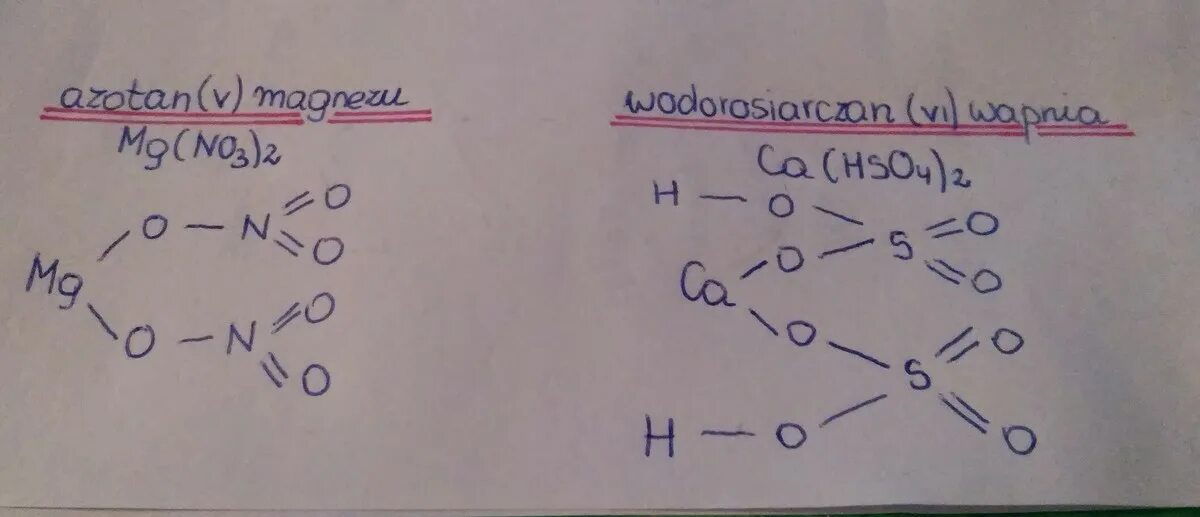 azotan (v) magnezu
Mg(NO3)2
O
O — N
O
Mg
O
O — N
O
wodorosiarczan (vi) wapnia
Ca (HSO4)2
H — O
O
S
O
O
Ca
O
O
S
H — O
O